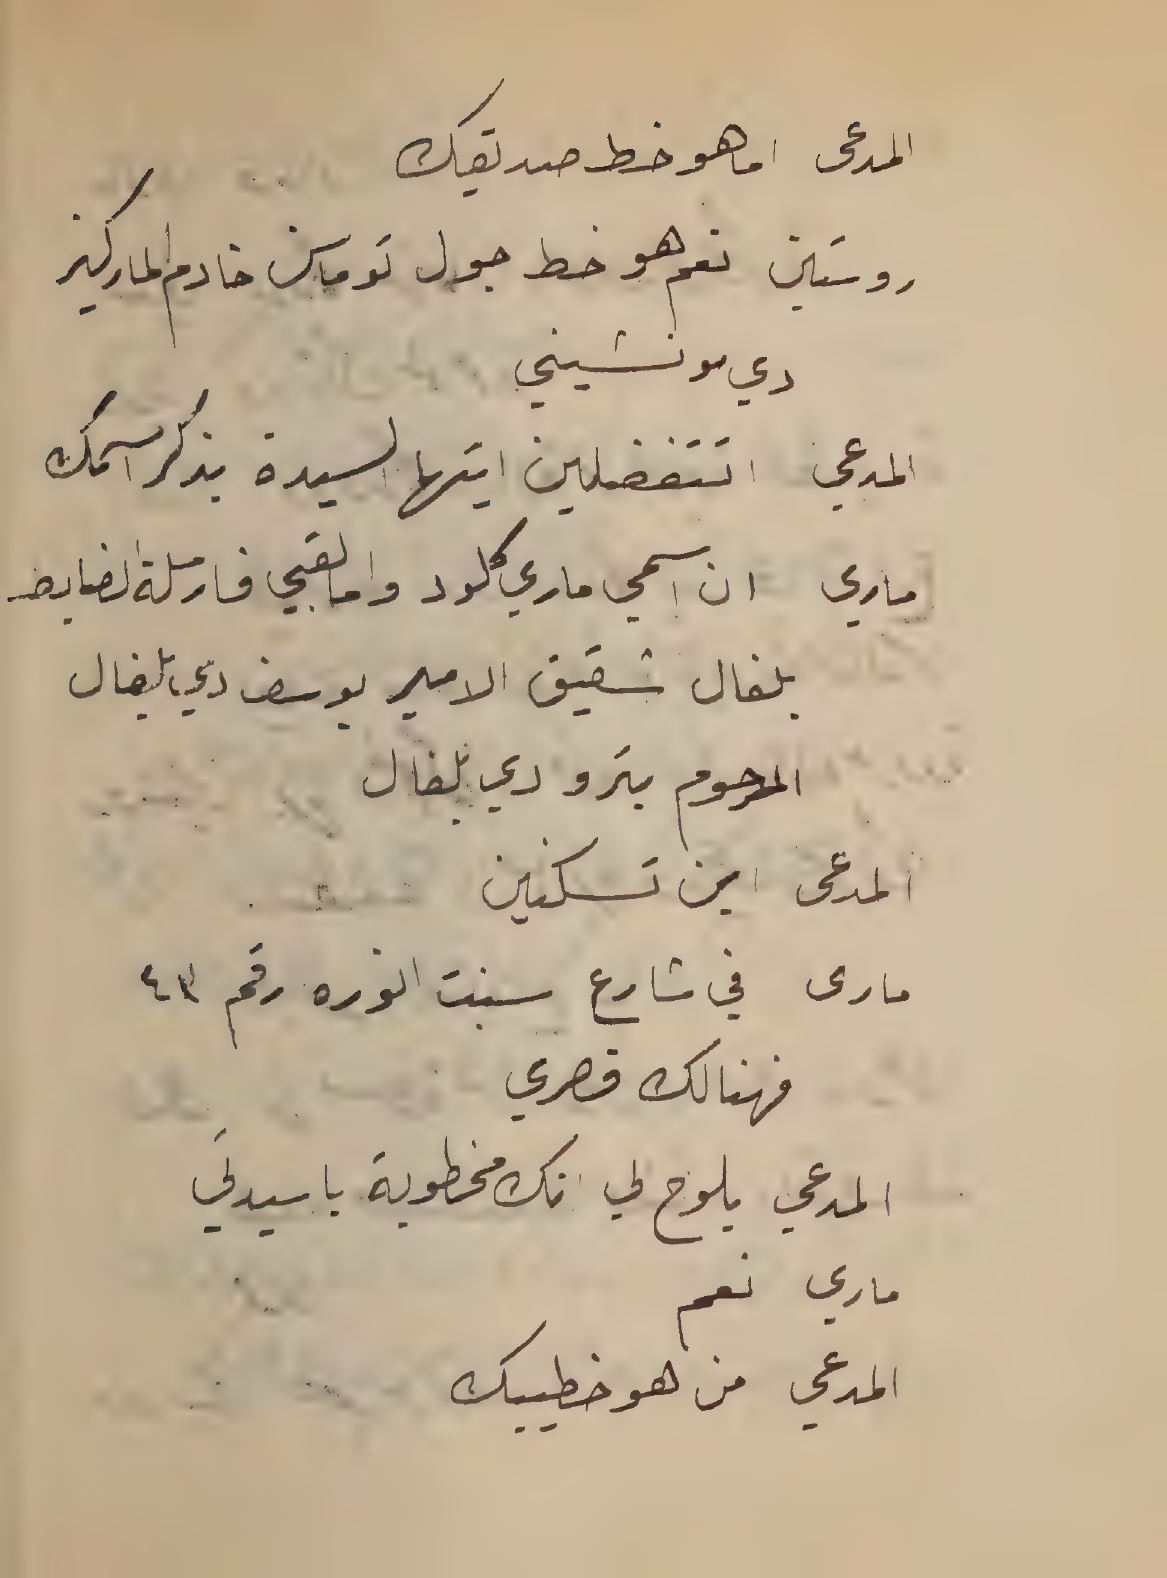 المدعى اما هو خط صديقك
روستين نعم هو خط جول توماس خادم الماركيز
دي مونشيني
المدعي اتتفضلين ايتها السيدة بذكر اسمك
ماري ان اسمي ماري كلود واما لقبي فارملة الضابط
بلغال شقيق الامير يوسف دي بلغال
المرحوم بترو دي بلغال
المدعى اين تسكنين
مارى في شارع سنت انوره رقم ٤٣
فهنالك قصري
المدعي يلوح لي انك مخطوبة يا سيدتي
ماري نعم
المدعي من هو خطيبك